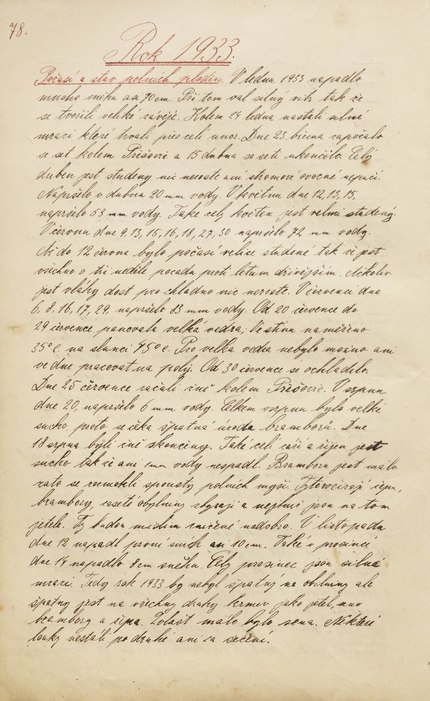 78.
Rok 1933.
Počasí a stav polních plodin. V lednu 1933 napadlo
mnoho sněhu asi 70 cm. Při tom vál silný vítr tak že
se tvořili veliké závěje. Kolem 24 ledna nastali silné
mrazi které trvali přes celí únor. Dne 23 března započalo
se set kolem Přišovic a 15 dubna se setí ukončilo. Celý
duben jest studený nic neroste ani stromoví ovocné nepučí
Napršelo v dubnu 20 mm vody. V květnu dne 12, 13, 15,
napršelo 53 mm vody. Také celý květen jest velmi studený.
V červnu dne 9, 13, 15, 16, 18, 27, 30 napršelo 72 mm vody
Až do 12 června bylo počasí velice studené tak že jest
všechno o tři neděle pozadu proti létům dřívějším. Ačkoliv
jest vláhy dost pro chladno nic neroste. V červenci dne
6, 8, 16, 17, 29 napršelo 13 mm vody. Od 20 července do
29 července panovala velká vedra; Ve stínu naměřeno
35° C. na slunci 45° C. Pro velká vedra nebylo možno ani
ve dne pracovat na poly. Od 30 července se ochladilo.
Dne 25 července začali žně kolem Přišovic. V srpnu
dne 20, napršelo 6 mm vody. Celkem v srpnu bylo velké
sucho proto se čeká špatná úroda bramborů. Dne
18 srpna byli žně skončeny. Také celí září a říjen jest
sucho tak že ani 1 mm vody nespadl. Bramborů jest málo
zato se rozmohli spousty polních myší. Tyto rozžírají řípu,
brambory, zaseté obyliny chyrají a nejhůř jsou na tom
jetele. Ty budou musím zničené nadobro. V listopadu
dne 12 napadl první sníh asi 10 cm. Také v prosinci
dne 14 napadlo 8 cm sněhu. Celý prosinec jsou silné
mrazi. Tedy rok 1933 by nebyl špatný na obyliny ale
špatný jest na všechny druhy krmiv jako jetel, seno
brambory a řípa. Zvlášť málo bylo sena. Některé
louky nestáli po druhé ani za sečení.